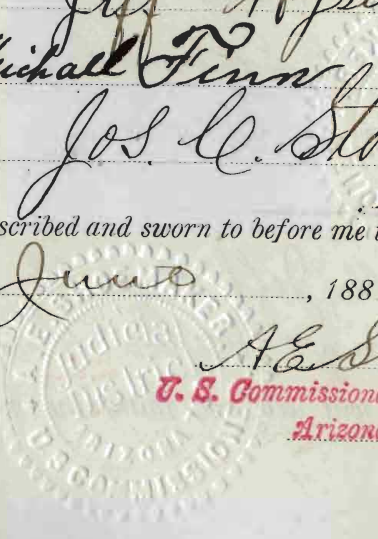 Michall Finn
Jos. C. Sto
scribed and sworn to before me
June, 188
A E S
U. S. Commission
Arizona
Judicial
Distric
ARIZONA
U S COMMISSION